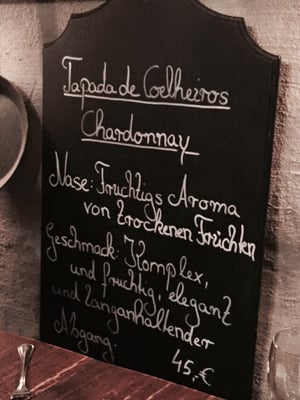 Tapada de Coelheiros
Chardonnay
Nase: Fruchtigs Aroma
von trockenen Früchten
Geschmack: Komplex,
und fruchtig, elegant
und langanhaltender
Abgang.
45,-€